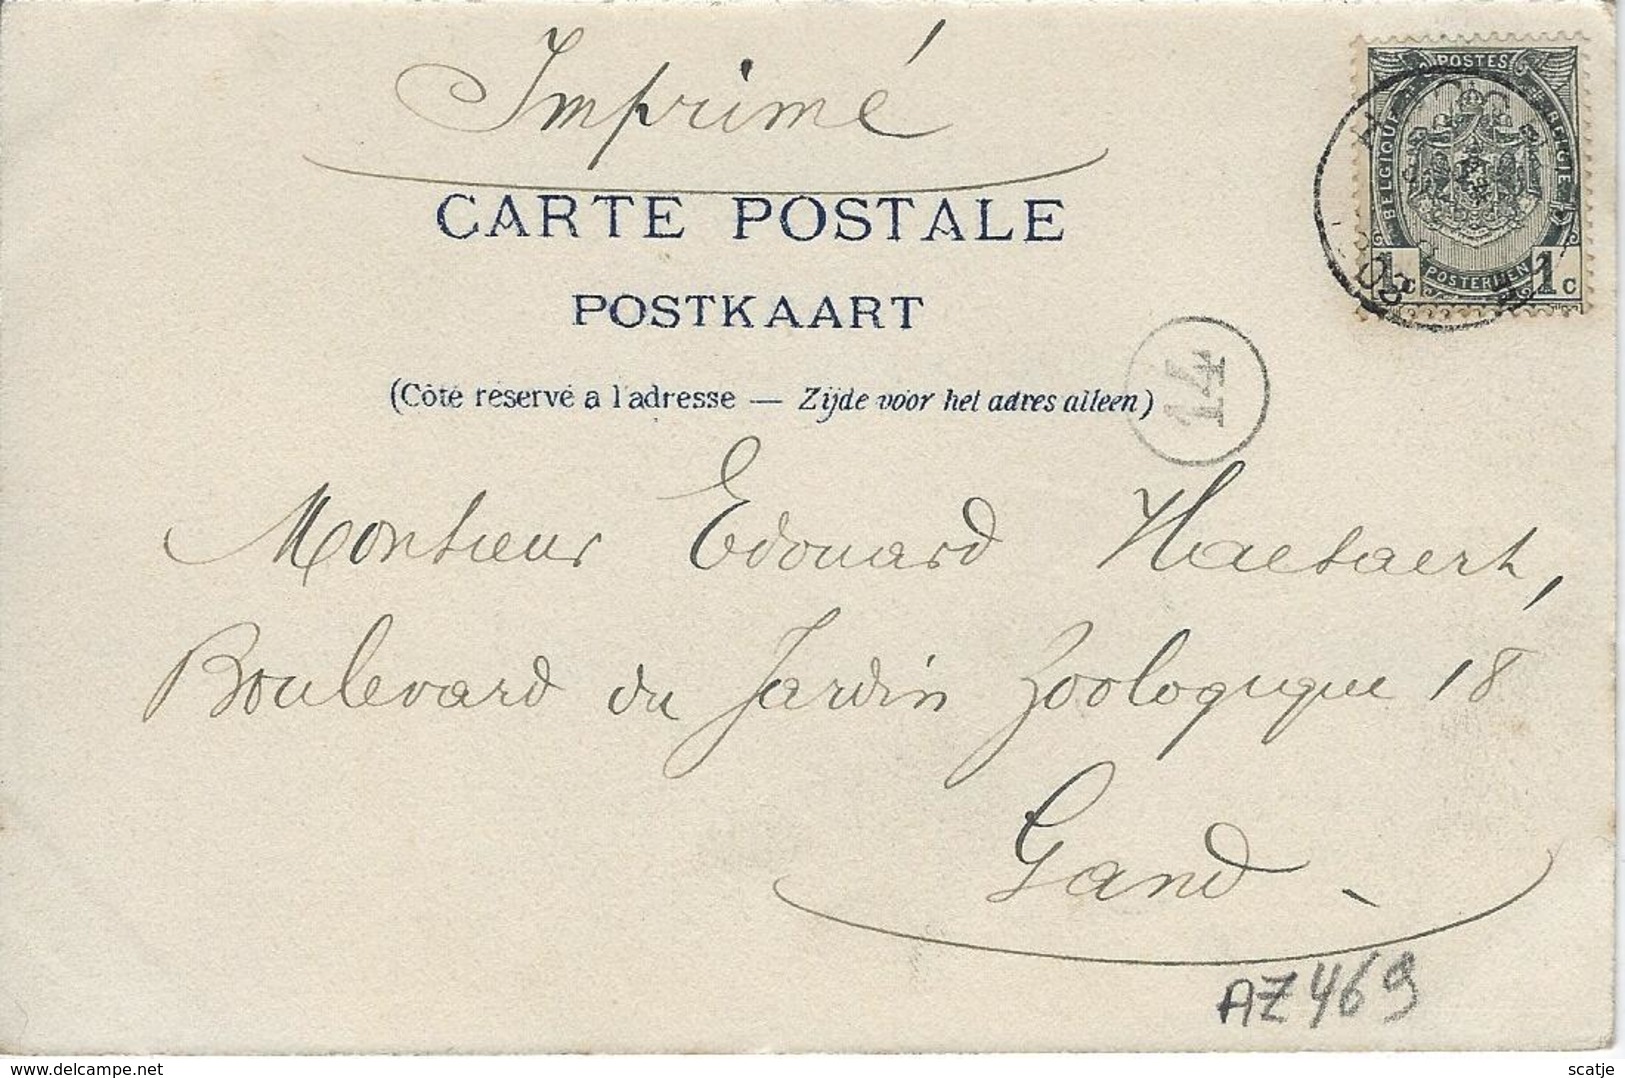 Imprimé
POSTES
BELGIQUE
BELGIË
POSTERIJEN
1c 1c
03
CARTE POSTALE
POSTKAART
(Côté réservé a l'adresse — Zijde voor het adres alleen)
14
Monsieur Edouard Haesaert,
Boulevard du Jardin Zoologique 18
Gand
AZ469
www.delcampe.net
scatje